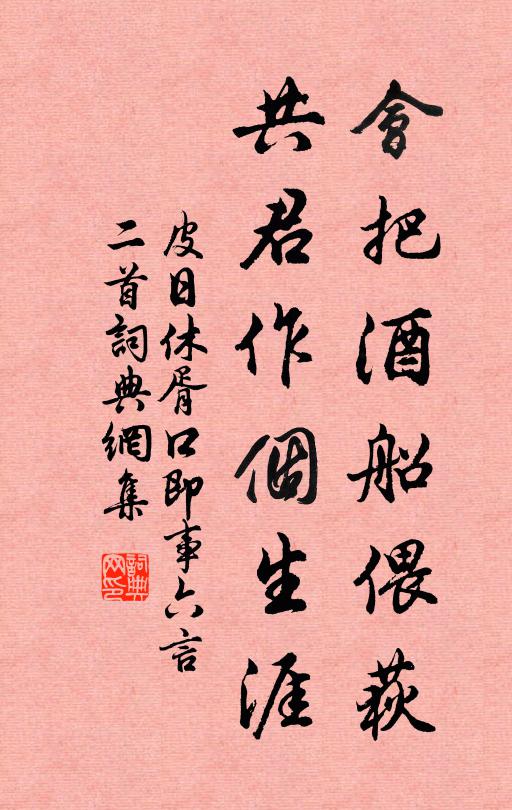 會把酒船偎荻
共君作個生涯
皮日休胥口即事六言
二首詞典網集
詞典網印